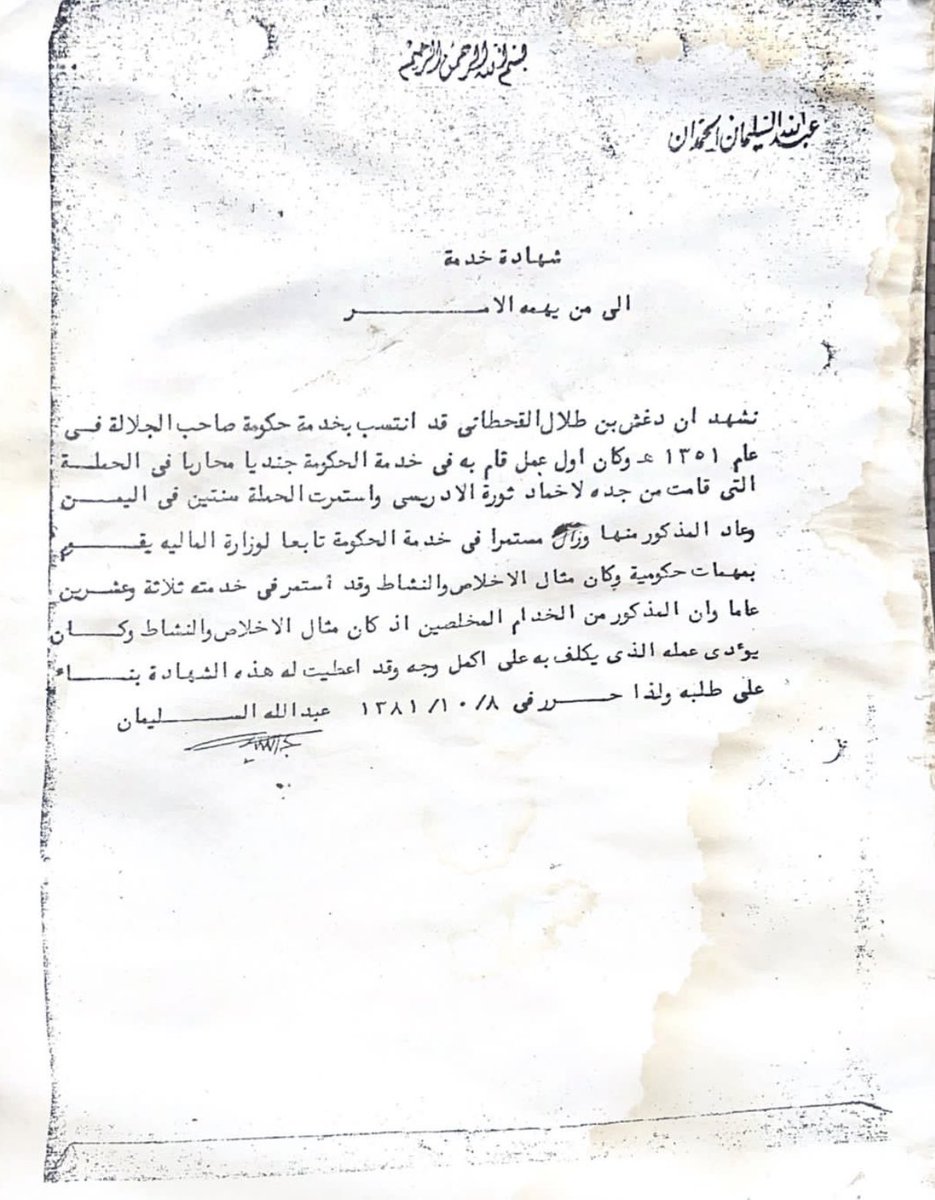 بسم الله الرحمن الرحيم
عبد الله السليمان الحمدان
شهادة خدمة
الى من يهمه الامـــــــر
نشهد ان دغش بن طلال القحطانى قد انتسب بخدمة حكومة صاحب الجلالة فــى
عام ١٣٥١ هـ وكان اول عمل قام به فى خدمة الحكومة جنديا محاربا فى الحملـــة
التى قامت من جده لاخماد ثورة الادريسى واستمرت الحملة سنتين فى اليمـــن
وعاد المذكور منها مستمرا فى خدمة الحكومة تابعا لوزارة الماليه يقـــوم
بمهمات حكومية وكان مثال الاخلاص والنشاط وقد أستمر فى خدمته ثلاثة وعشـرين
عاما وان المذكور من الخدام المخلصين اذ كان مثال الاخلاص والنشاط وكـــان
يؤدى عمله الذى يكلف به على اكمل وجه وقد اعطيت له هذه الشهادة بنـــاء
على طلبه ولذا حـــرر فى ٨/ ١٠/ ١٣٨١ عبدالله الســـليمان